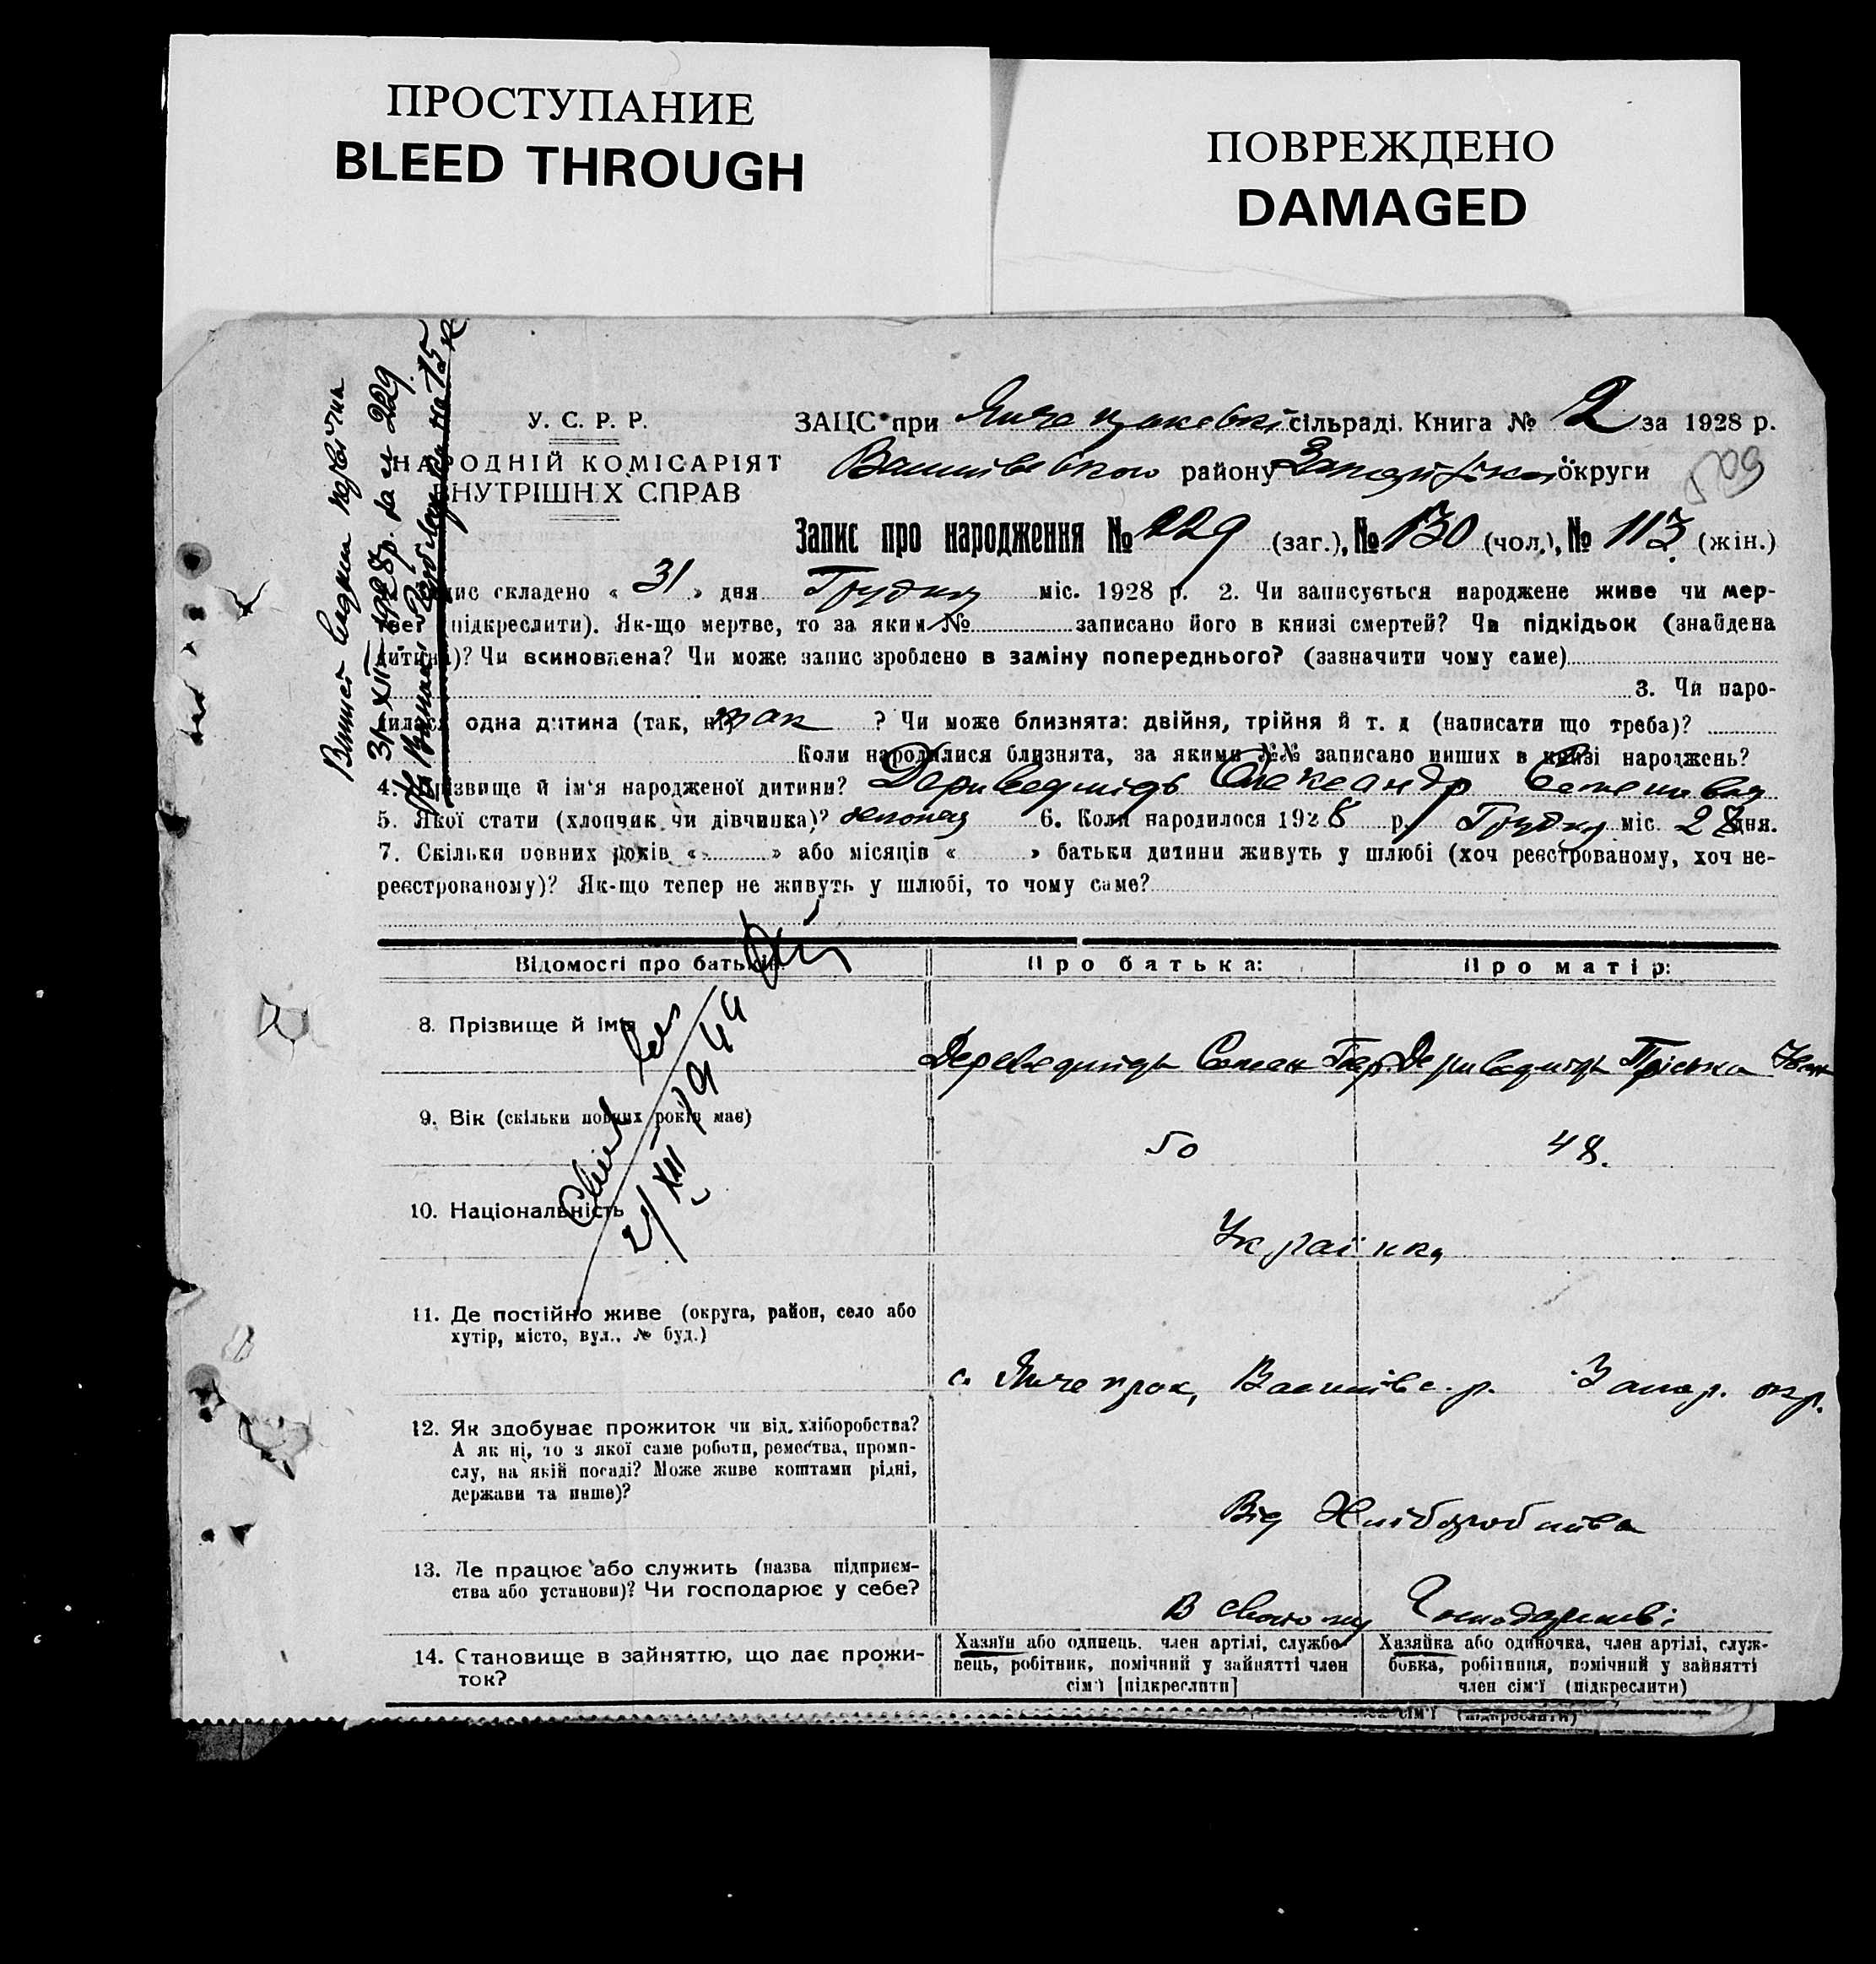 ПРОСТУПАНИЕ
BLEED THROUGH
ПОВРЕЖДЕНО
DAMAGED
У. С. Р. Р.
НАРОДНІЙ КОМІСАРІЯТ
ВНУТРІШНІХ СПРАВ
31 XII 1928 р. за № 229
ЗАЦС при сільраді. Книга № 2 за 1928 р.
Василівського району Запорізької округи
509
Запис про народження № 229 (заг.), № 130 (чол.), № 113 (жін.)
запис складено « 31 » дня Грудня міс. 1928 р. 2. Чи записується народжене живе чи мер-
тве (підкреслити). Як-що мертве, то за яким № записано його в книзі смертей? Чи підкідьок (знайдена
дитина)? Чи всиновлена? Чи може запис зроблено в заміну попереднього? (зазначити чому саме)
3. Чи наро-
дилася одна дитина (так, ні) так ? Чи може близнята: двійня, трійня й т. д (написати що треба)?
Коли народилися близнята, за якими №№ записано инших в книзі народжень?
4. Прізвище й ім'я народженої дитини? Олександр
5. Якої стати (хлопчик чи дівчинка)? хлопец 6. Коли народилося 1928 р. Грудня міс. 28 дня.
7. Скільки повних років « » або місяців « » батьки дитини живуть у шлюбі (хоч реєстрованому, хоч не-
реєстрованому)? Як-що тепер не живуть у шлюбі, то чому саме?
Відомості про батьків: Про батька: Про матір:
8. Прізвище й ім'я
Семен Пріська Іван
9. Вік (скільки повних років має)
50 48.
21/XII 1944
10. Національність
Українка
11. Де постійно живе (округа, район, село або
хутір, місто, вул., № буд.)
с. Янчекрак, Василівс. р. Запор. окр.
12. Як здобуває прожиток чи від. хліборобства?
А як ні, то з якої саме роботи, ремества, проми-
слу, на якій посаді? Може живе коштами рідні,
держави та инше)?
Від Хліборобства
13. Де працює або служить (назва підприєм-
ства або установи)? Чи господарює у себе?
В своєму Господарстві
14. Становище в зайняттю, що дає прожи-
ток?
Хазяїн або одинець, член артілі, службо-
вець, робітник, помічний у зайнятті член
сім'ї [підкреслити]
Хазяйка або одиночка, член артілі, служ-
бовка, робітниця, помічний у зайнятті
член сім'ї (підкреслити)
сім'ї (підкреслити)